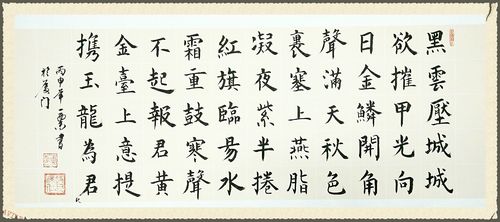 黑雲壓城城
欲摧甲光向
日金鱗開角
聲滿天秋色
裏塞上燕脂
凝夜紫半捲
紅旗臨易水
霜重鼓寒聲
不起報君黃
金臺上意提
携玉龍為君
丙申年書
於厦门